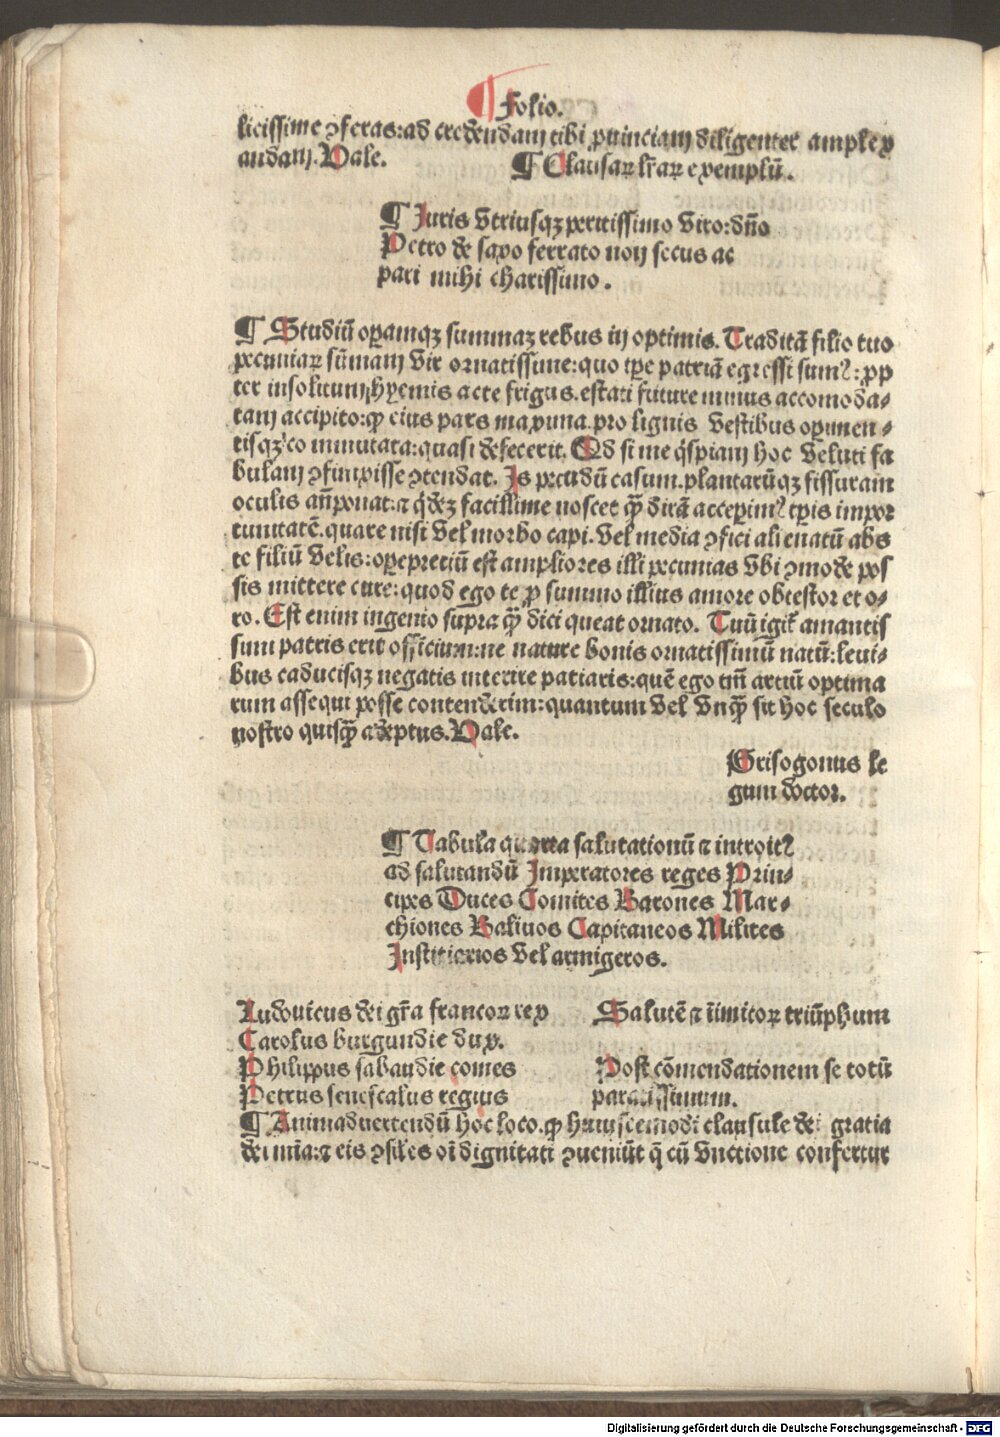 ¶ Folio.
licissime ↄferas: ad credēndam tibi ꝓuinciam diligenter amplex
andam. Vale. ¶ Clausaꝝ lr̄aꝝ exemplū.
¶ Juris vtriusqꝫ peritissimo viro: dn̄o
Petro de saxo ferrato non secus ac
pari mihi charissimo.
¶ Studiū oꝑamqꝫ summaꝫ rebus in optimis. Traditā filio tuo
pecuniaꝝ sūmam vir ornatissime: quo tꝑe patriā egressi sumꝰ: ꝓp
ter insolitum hyemis acre frigus. estati future minus accomoda⸗
tam accipito: qꝙ eius pars maxima. pro lignis vestibus oꝑimen⸗
tisqꝫ co mmutata: quasi defecerit. Qd si me q̇spiam hoc veluti fa
bulam ↄfinxisse ↄtendat. Is pecudū casum. plantarūqꝫ fissuram
oculis an̄ponat: ⁊ q̇deꝫ facillime noscet qꝙ̄ dirā acceꝑimꝰ tꝑis impor
tunitatē. quare nisi vel morbo capi. vel media ↄfici alienatū abs
te filiū velis: oꝑepreciū est ampliores illi pecunias vbi ↄmode pos
sis mittere cure: quod ego te ꝓ summo illius amore obtestor et o⸗
ro. Est enim ingenio supra qꝙ̄ dici queat ornato. Tuū igit᷑ amantis
simi patris erit officium: ne nature bonis ornatissimū natū: leui⸗
bus caducisqꝫ negatis interire patiaris: quē ego tm̄ artiū optima
rum assequi posse contenderim: quantum vel vnqꝙ̄ sit hoc seculo
nostro quisqꝙ̄ adeptus. Vale.
Grisogonus le
gum doctor.
¶ Tabula quarta salutationū ⁊ introitꝰ
ad salutandū Imperatores reges Prin⸗
cipes Duces Comites Barones Mar⸗
chiones Baliuos Capitaneos Milites
Justiciarios vel armigeros.
Ludouicus dei gr̄a francoꝝ rex Salutē ⁊ īimicoꝝ triūphum
Carolus burgundie dux.
Philippus sabaudie comes Post cōmendationem se totū
Petrus senescalus regius paratissimum.
¶ Animaduertendū hoc loco. qꝙ huiuscemodi clausule dei gratia
dei mīa: ⁊ eis ↄsiles oī dignitati ↄueniūt q̄ cū vnctione confertur
Digitalisierung gefördert durch die Deutsche Forschungsgemeinschaft - DFG